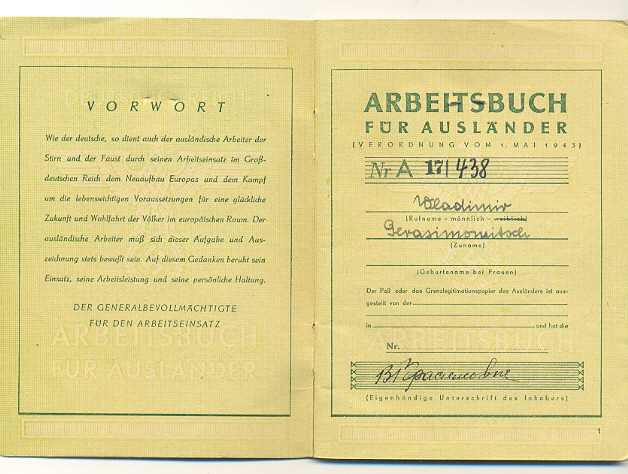 VORWORT
Wie der deutsche, so dient auch der ausländische Arbeiter der
Stirn und der Faust durch seinen Arbeitseinsatz im Groß-
deutschen Reich dem Neuaufbau Europas und dem Kampf
um die lebenswichtigen Voraussetzungen für eine glückliche
Zukunft und Wohlfahrt der Völker im europäischen Raum. Der
ausländische Arbeiter muß sich dieser Aufgabe und Aus-
zeichnung stets bewußt sein. Auf diesem Gedanken beruht sein
Einsatz, seine Arbeitsleistung und seine persönliche Haltung.
DER GENERALBEVOLLMÄCHTIGTE
FÜR DEN ARBEITSEINSATZ
ARBEITSBUCH
FÜR AUSLÄNDER
ARBEITSBUCH
FÜR AUSLÄNDER
(VERORDNUNG VOM 1. MAI 1943)
Nr A 17/438
Wladimir
(Rufname – männlich – weiblich)
Gerasimowitsch
(Zuname)
(Geburtsname bei Frauen)
Der Paß oder das Grenzlegitimationspapier des Ausländers ist aus-
gestellt von der
in und hat die
Nr.
(Eigenhändige Unterschrift des Inhabers)
ARBEITSBUCH
FÜR AUSLÄNDER
1